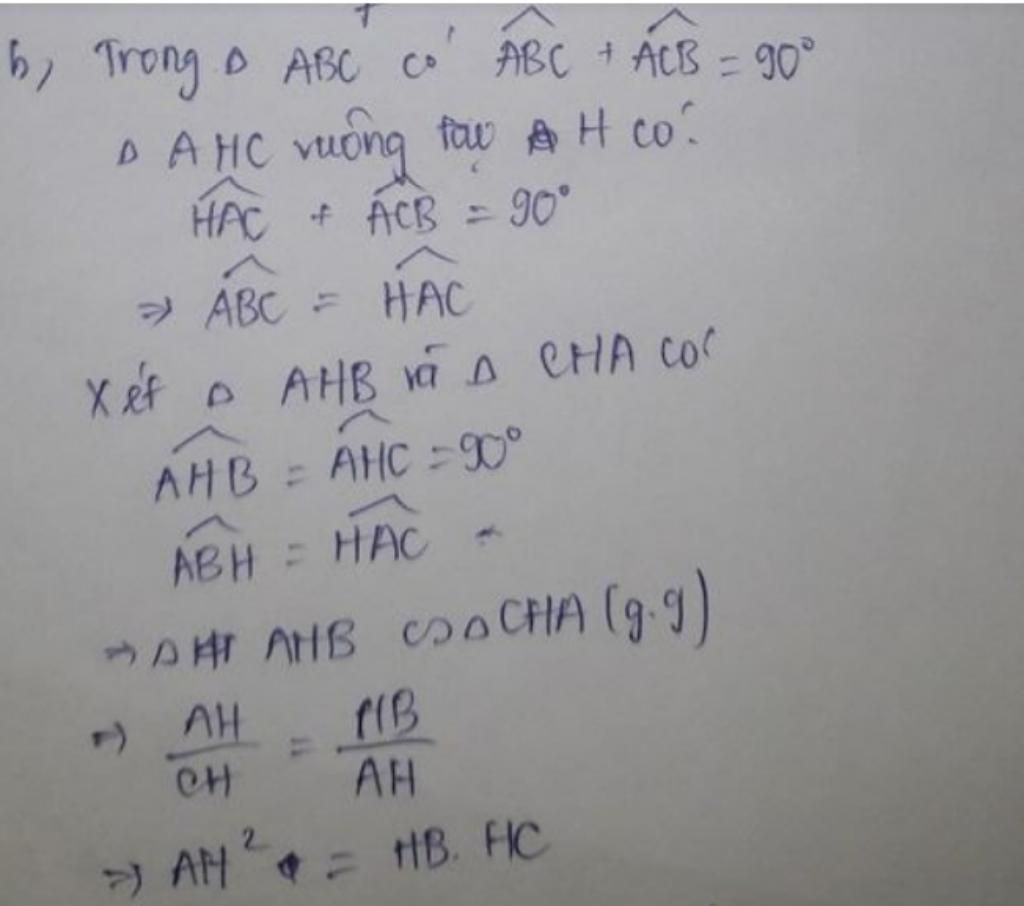 b, Trong Δ ABC có \widehat{ABC} + \widehat{ACB} = 90°
Δ AHC vuông tại H có:
\widehat{HAC} + \widehat{ACB} = 90°
⇒ \widehat{ABC} = \widehat{HAC}
Xét Δ AHB và Δ CHA có
\widehat{AHB} = \widehat{AHC} = 90°
\widehat{ABH} = \widehat{HAC}
⇒ Δ AHB ∽ Δ CHA (g.g)
⇒ \frac{AH}{CH} = \frac{HB}{AH}
⇒ AH² = HB. HC